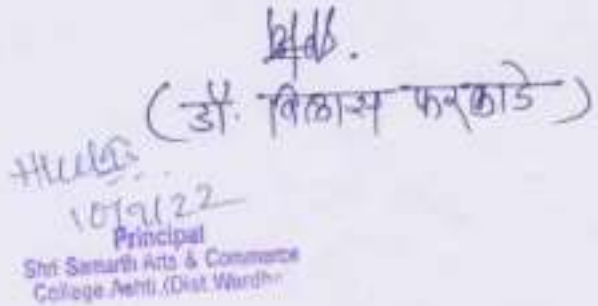 (डॉ. विलास फरकाडे)
10/9/22
Principal
Shri Samarth Arts & Commerce
College Ashti (Dist Wardha